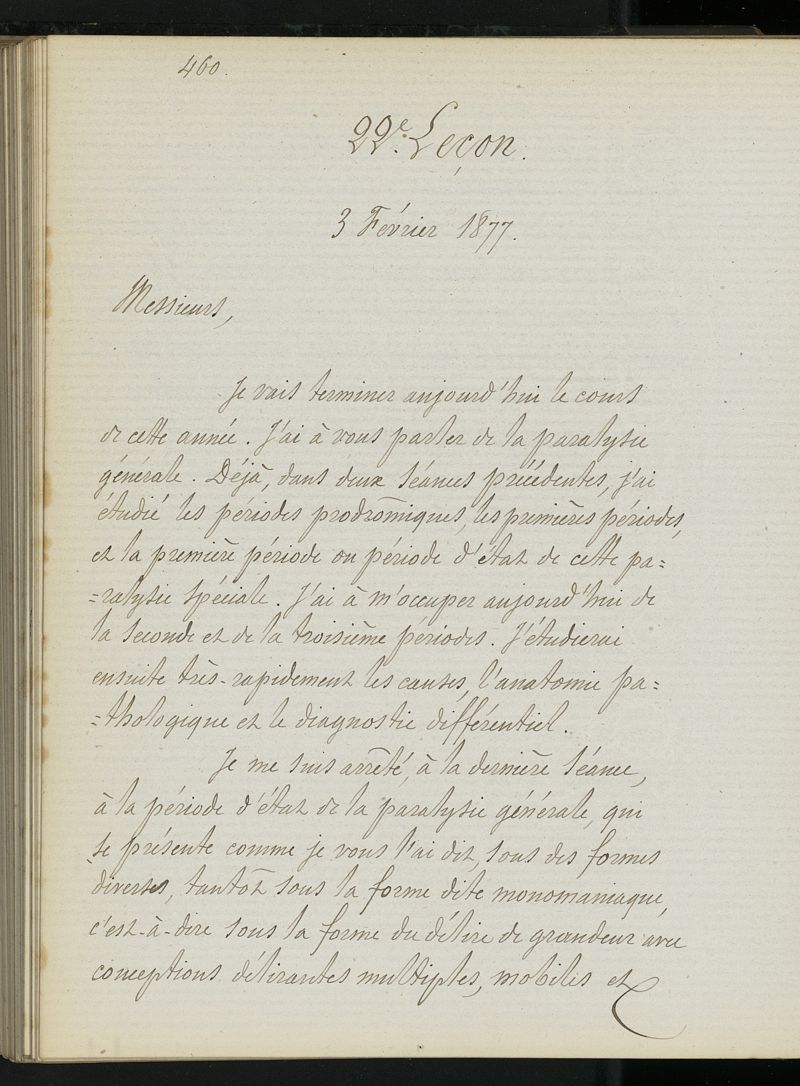 460.
22e. Leçon.
3 Février 1877.
Messieurs,
Je vais terminer aujourd'hui le cours
de cette année. J'ai à vous parler de la paralysie
générale. Déjà, dans deux séances précédentes, j'ai
étudié les périodes prodrômiques, les premières périodes,
et la première période ou période d'état de cette pa=
=ralysie spéciale. J'ai à m'occuper aujourd'hui de
la seconde et de la troisième périodes. J'étudierai
ensuite très-rapidement les causes, l'anatomie pa=
=thologique et le diagnostic différentiel.
Je me suis arrêté, à la dernière séance,
à la période d'état de la paralysie générale, qui
se présente comme je vous l'ai dit, sous des formes
diverses, tantôt sous la forme dite monomaniaque,
c'est-à-dire sous la forme du délire de grandeur avec
conceptions délirantes multiples, mobiles et